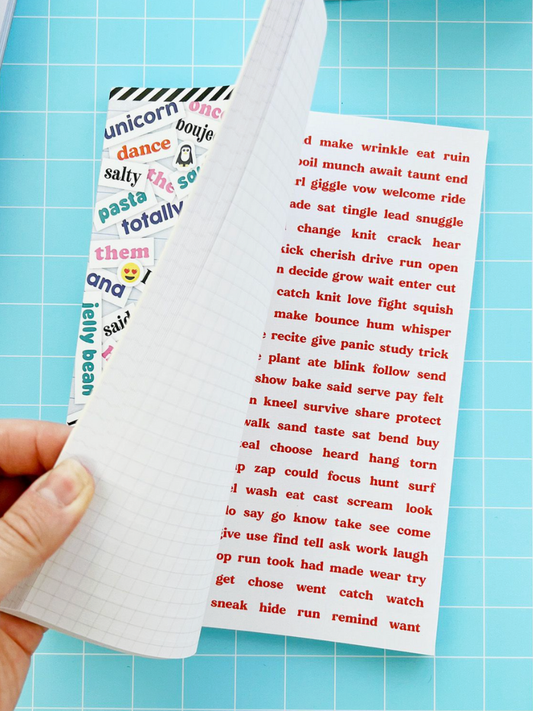 unicorn once
bouje
dance
salty the
pasta
totally
them
and
said
jelly bean
make wrinkle eat ruin
munch await taunt end
giggle vow welcome ride
sat tingle lead snuggle
change knit crack hear
cherish drive run open
decide grow wait enter cut
catch knit love fight squish
make bounce hum whisper
recite give panic study trick
plant ate blink follow send
show bake said serve pay felt
kneel survive share protect
walk sand taste sat bend buy
choose heard hang torn
zap could focus hunt surf
wash eat cast scream look
say go know take see come
give use find tell ask work laugh
run took had made wear try
get chose went catch watch
sneak hide run remind want